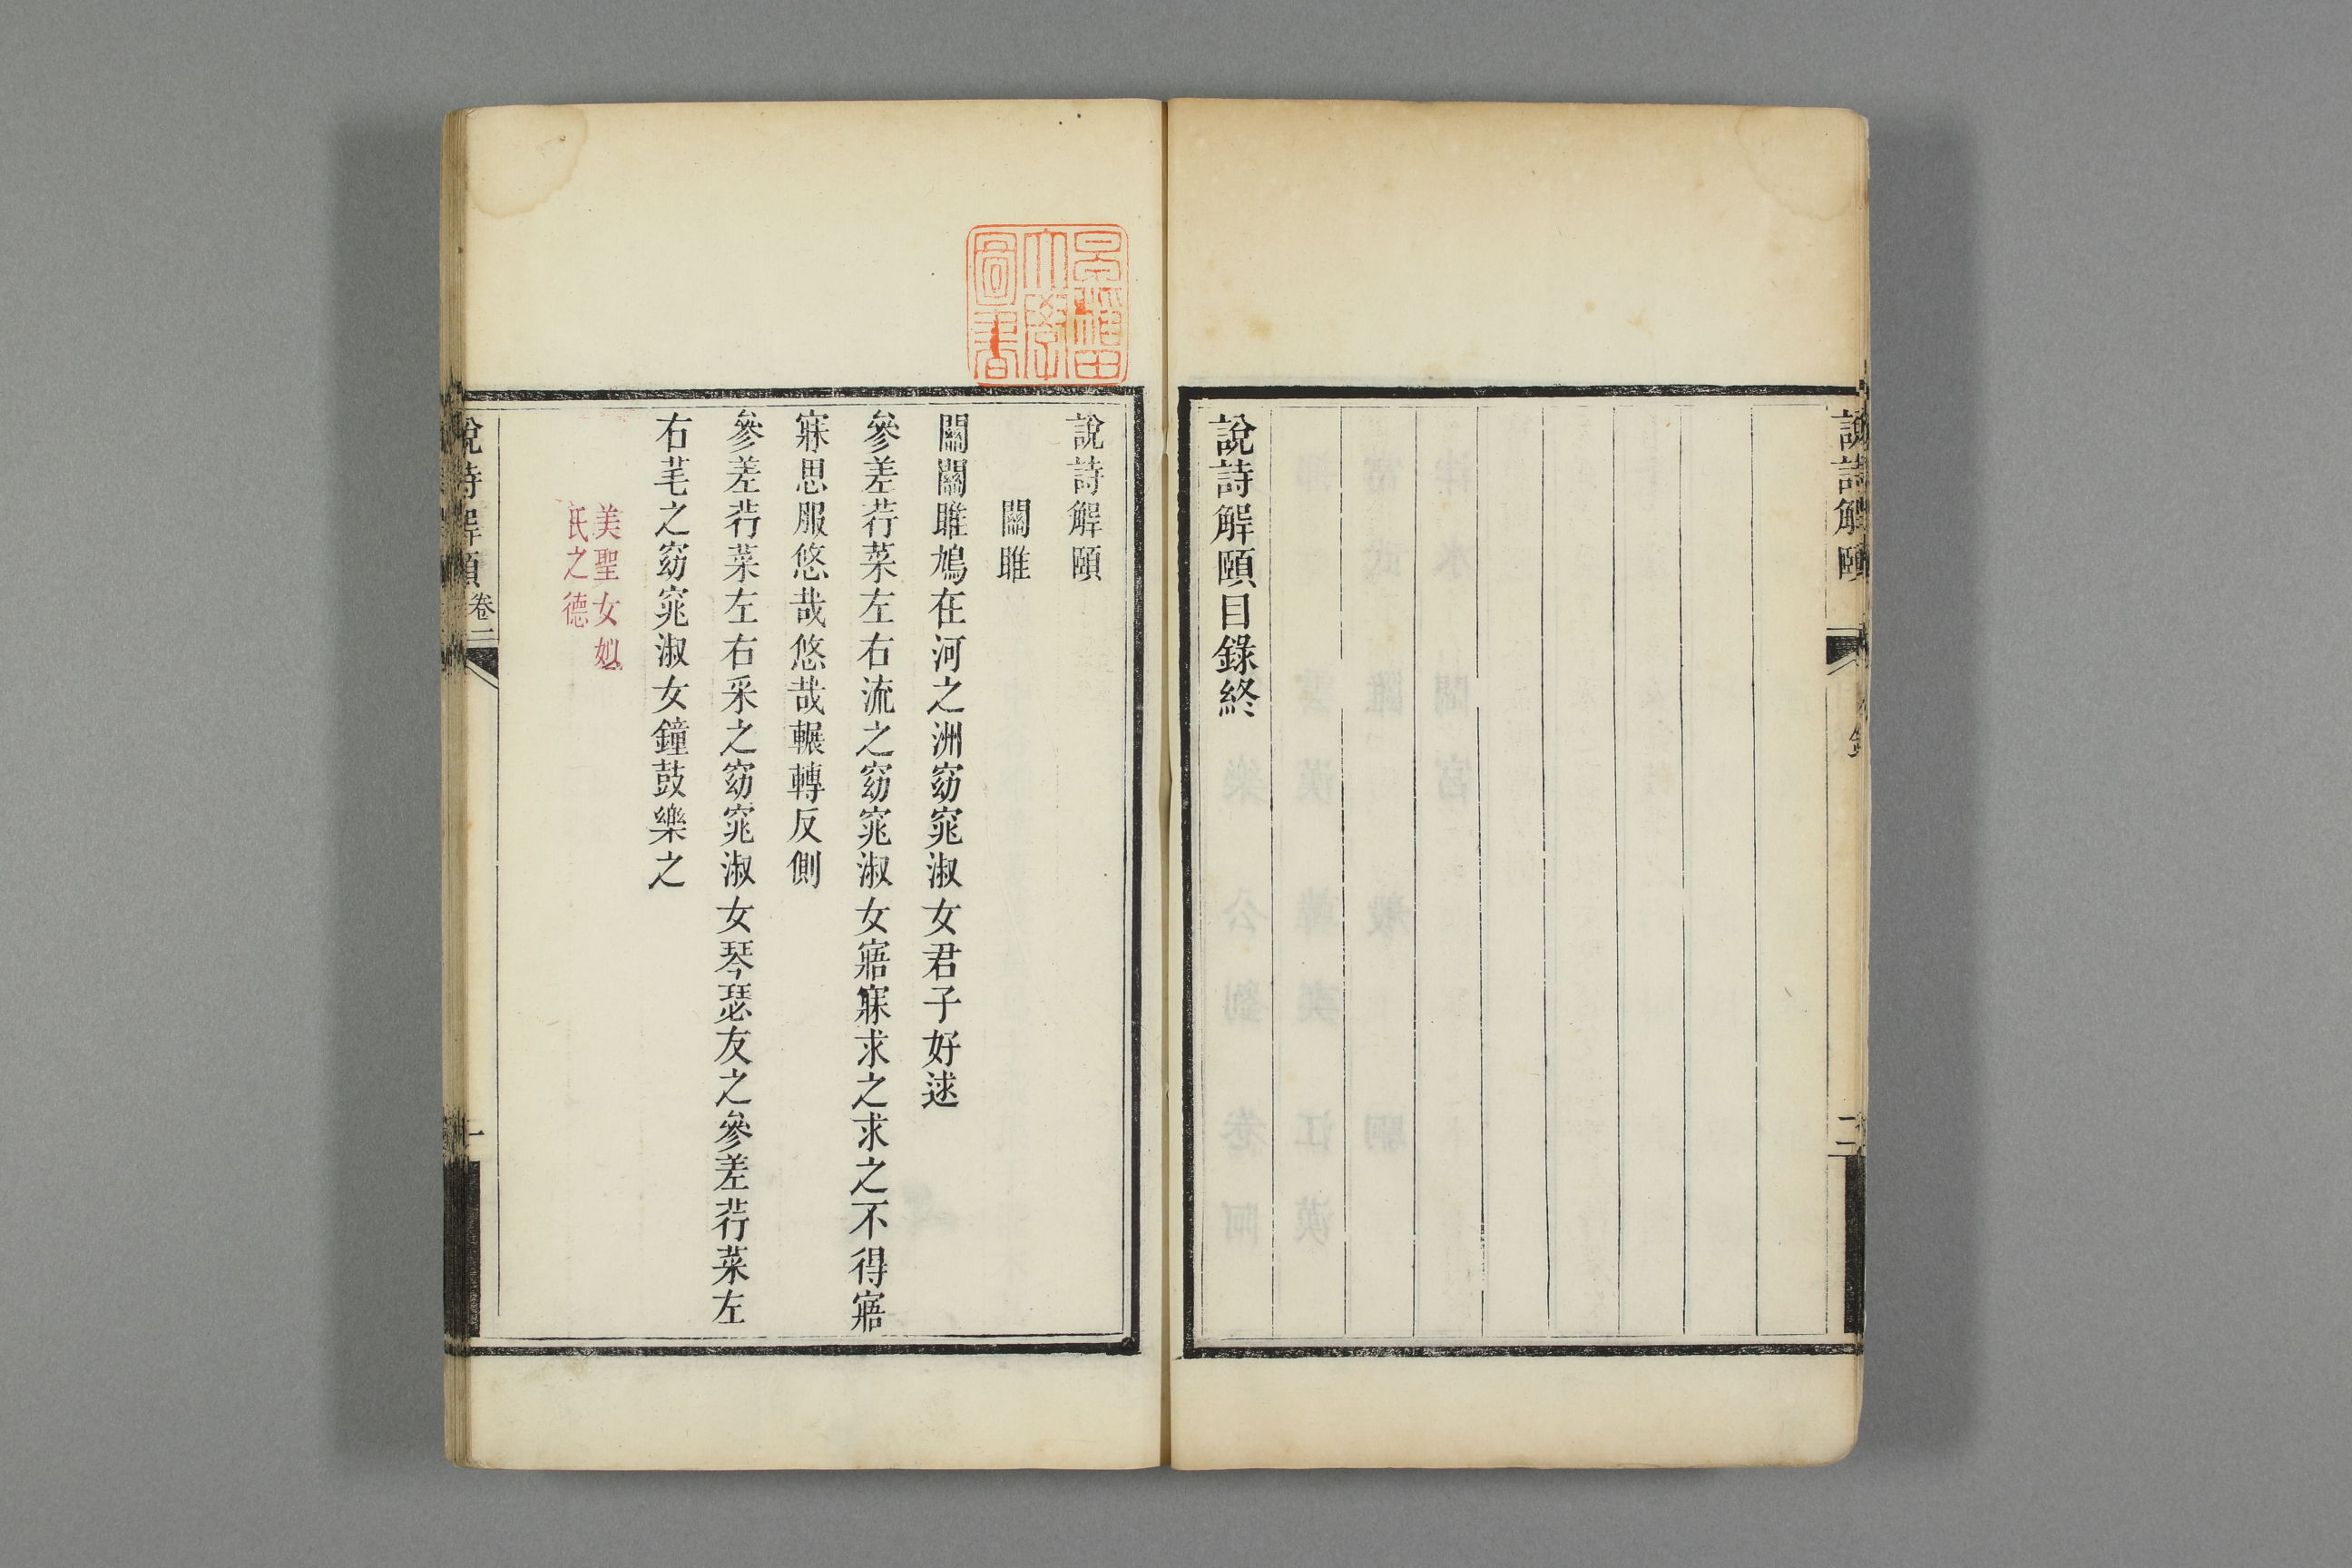 說詩解頤
二
說詩解頤目錄終
景雅書
大學
圖書
說詩解頤
關雎
關關雎鳩在河之洲窈窕淑女君子好逑
參差荇菜左右流之窈窕淑女寤寐求之求之不得寤
寐思服悠哉悠哉輾轉反側
參差荇菜左右采之窈窕淑女琴瑟友之參差荇菜左
右芼之窈窕淑女鐘鼓樂之
美聖女姒
氏之德
說詩解頤
卷一
一